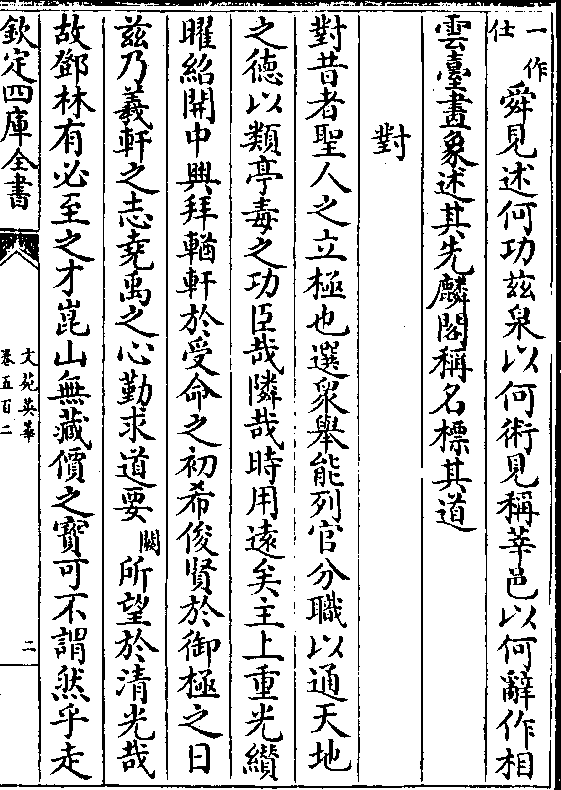 一作仕舜見述何功茲泉以何術見稱莘邑以何辭作相
雲臺畫象述其先麟閣稱名標其道
對
對昔者聖人之立極也選衆舉能列官分職以通天地
之德以類亭毒之功臣哉隣哉時用遠矣主上重光纘
曜紹開中興拜輶軒於受命之初希俊賢於御極之日
茲乃羲軒之志堯禹之心勤求道要闕所望於清光哉
故鄧林有必至之才崑山無藏價之寶可不謂然乎走
欽定四庫全書
文苑英華
卷五百二
二